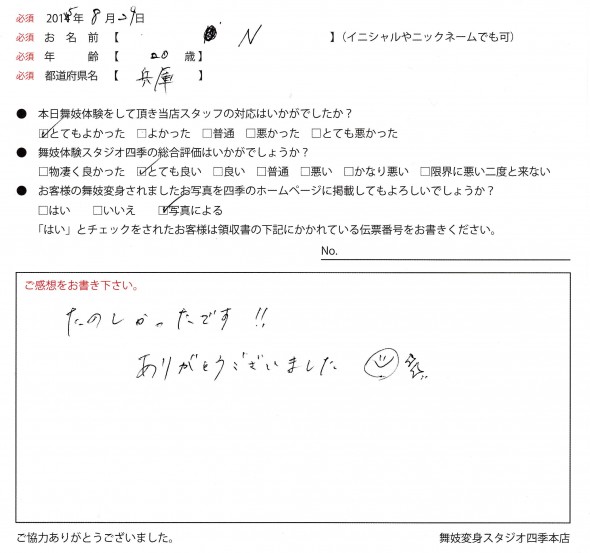 必須 2015年8月29日
必須 お名前【 N 】(イニシャルやニックネームでも可)
必須 年齢【 20 歳】
必須 都道府県名【 兵庫 】
● 本日舞妓体験をして頂き当店スタッフの対応はいかがでしたか?
☑とてもよかった □よかった □普通 □悪かった □とても悪かった
● 舞妓体験スタジオ四季の総合評価はいかがでしょうか?
□物凄く良かった ☑とても良い □良い □普通 □悪い □かなり悪い □限界に悪い二度と来ない
● お客様の舞妓変身されましたお写真を四季のホームページに掲載してもよろしいでしょうか?
□はい □いいえ ☑写真による
「はい」とチェックをされたお客様は領収書の下記にかかれている伝票番号をお書きください。
No.
ご感想をお書き下さい。
たのしかったです!!
ありがとうございました
ご協力ありがとうございました。 舞妓変身スタジオ四季本店